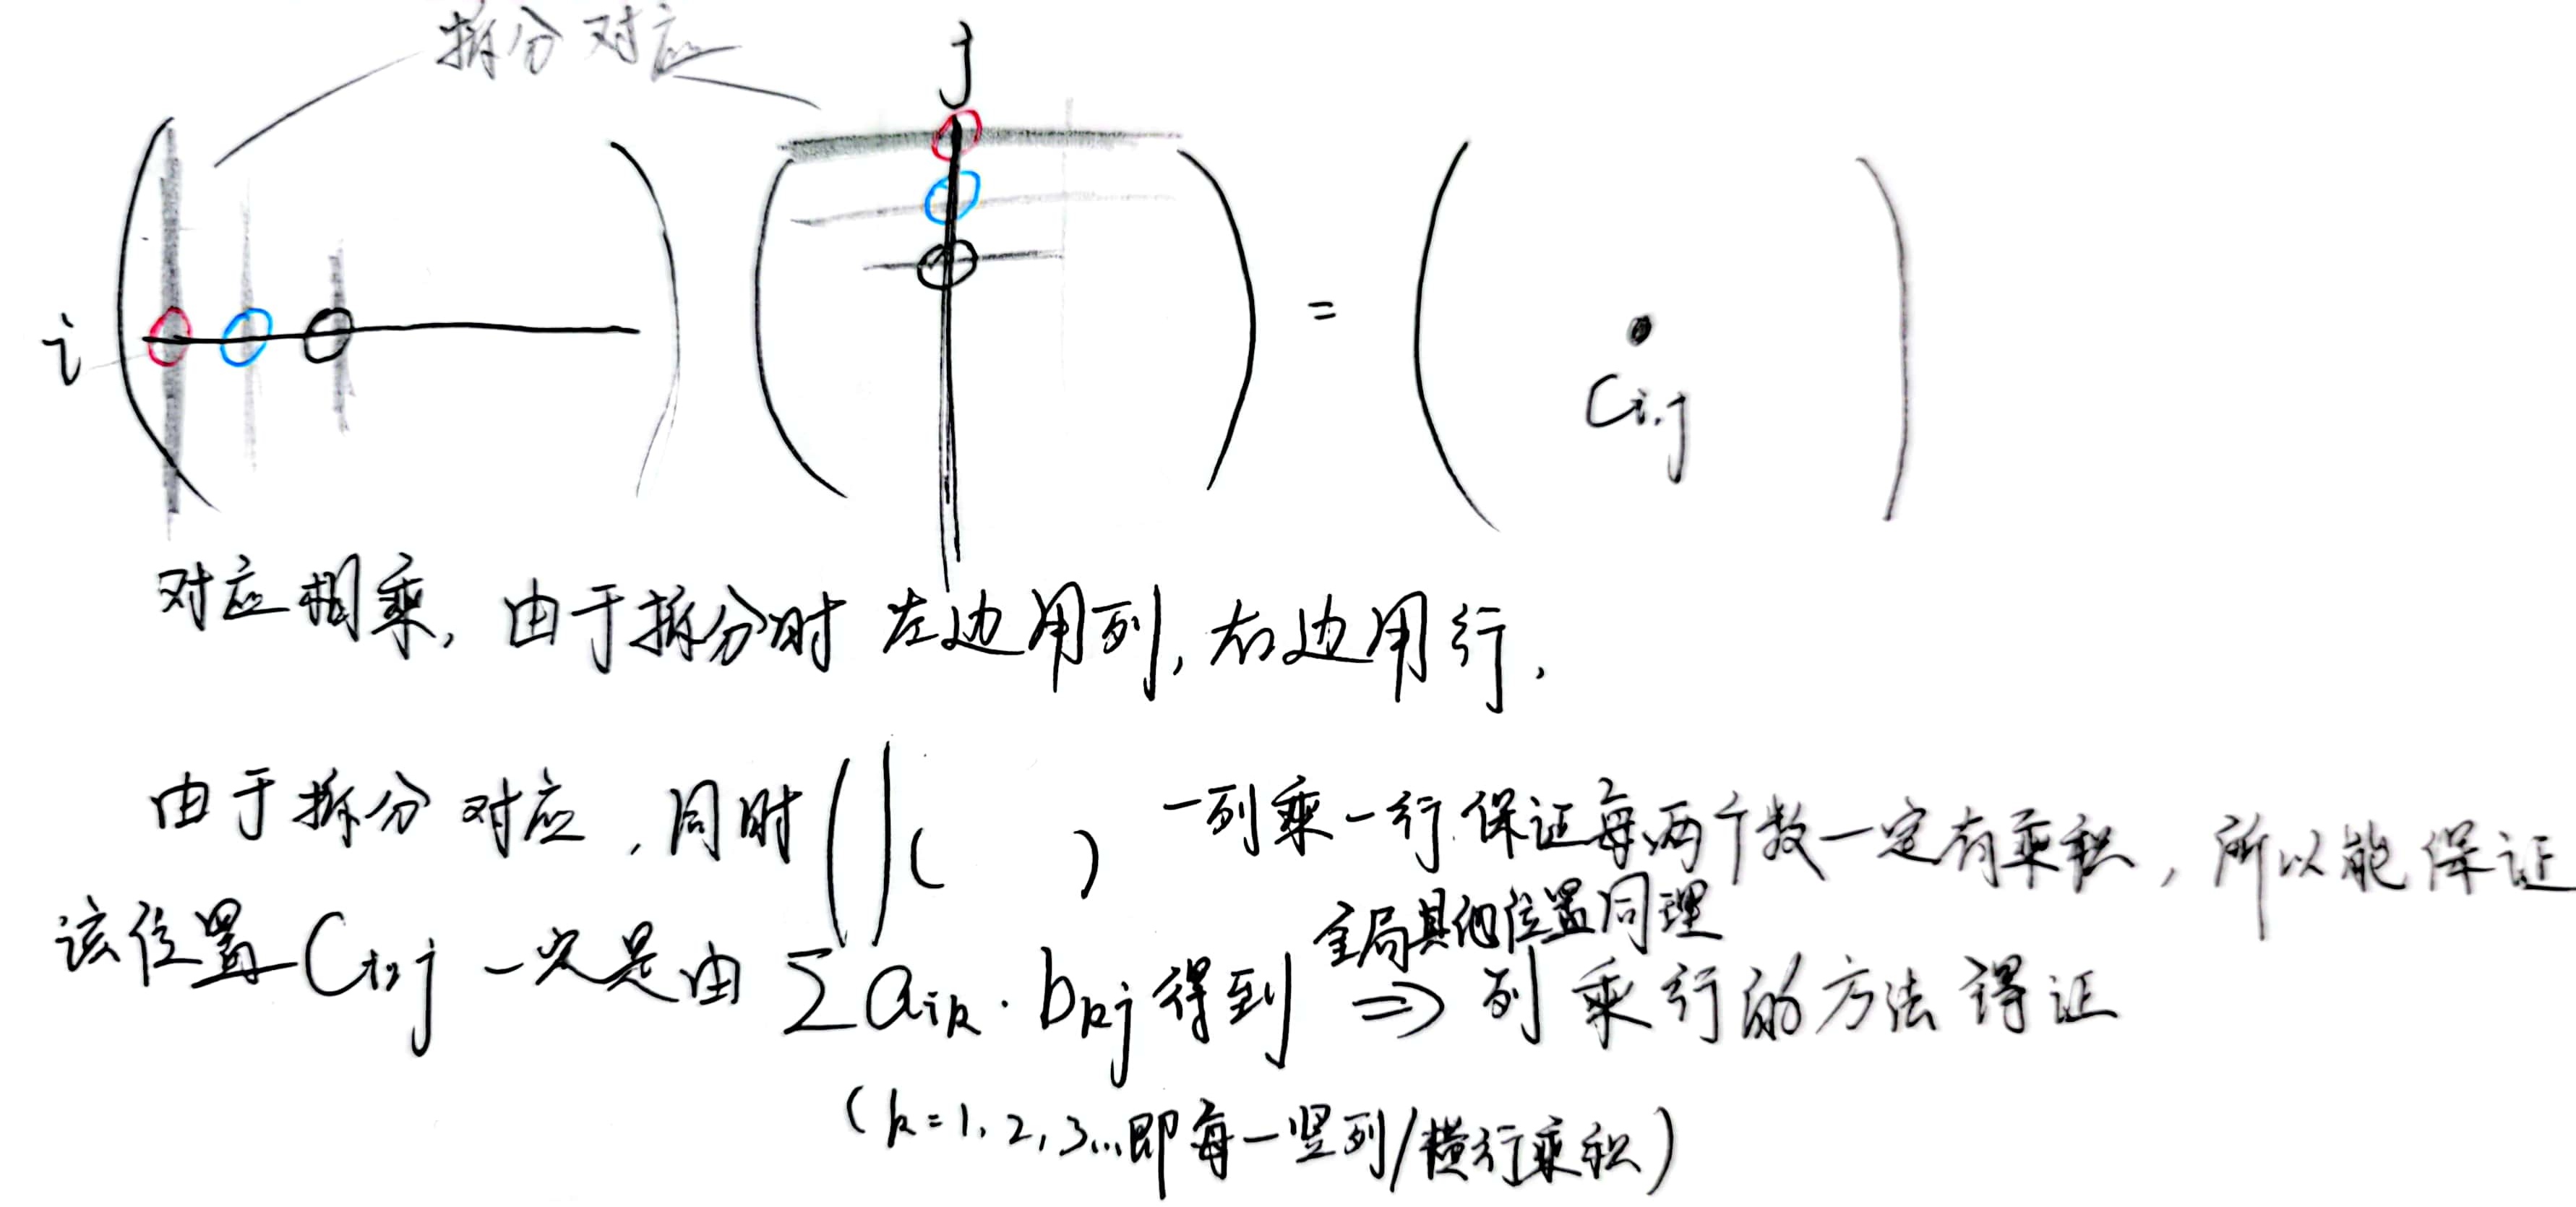 拆分对应
j
i
=
Ci,j
对应相乘，由于拆分时 左边用列，右边用行，
由于拆分对应，同时 ( | ( ) 一列乘一行 保证每两个数一定有乘积，所以能保证
全局其他位置同理
该位置 Ci,j 一定是由 ∑ aik · bkj 得到 => 列乘行的方法得证
(k=1, 2, 3...即每一竖列/横行乘积)